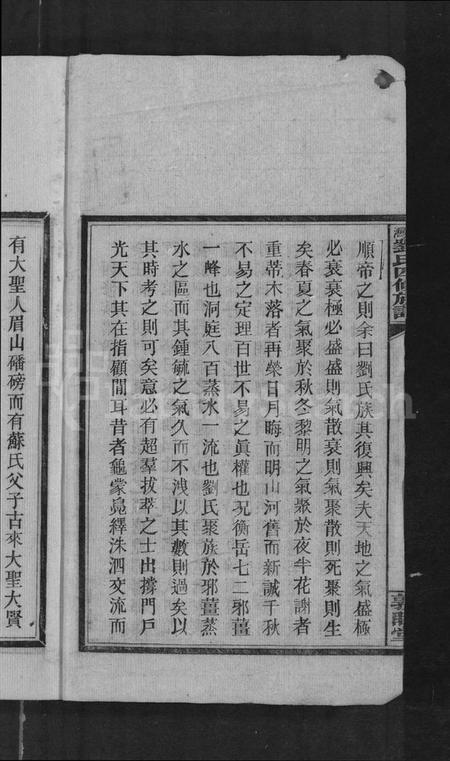 劉氏四修族譜
順帝之則余曰劉氏族其復興矣夫天地之氣盛極
必衰衰極必盛盛則氣散衰則氣聚散則死聚則生
矣春夏之氣聚於秋冬黎明之氣聚於夜半花謝者
重蒂木落者再榮日月晦而明山河舊而新誠千秋
不易之定理百世不易之眞權也況衡岳七二邪薑
一峰也洞庭八百蒸水一流也劉氏聚族於邪薑蒸
水之區而其鍾毓之氣久而不洩以其數則過矣以
其時考之則可矣意必有超羣拔萃之士出撐門戶
光天下其在指顧閒耳昔者龜蒙鳧繹洙泗交流而
有大聖人眉山磻磅而有蘇氏父子古來大聖大賢